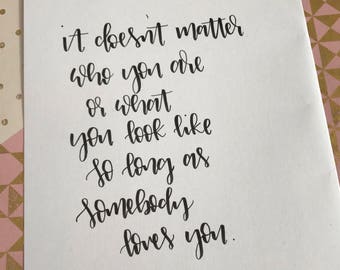 it doesn't matter
who you are
or what
you look like
so long as
somebody
loves you.